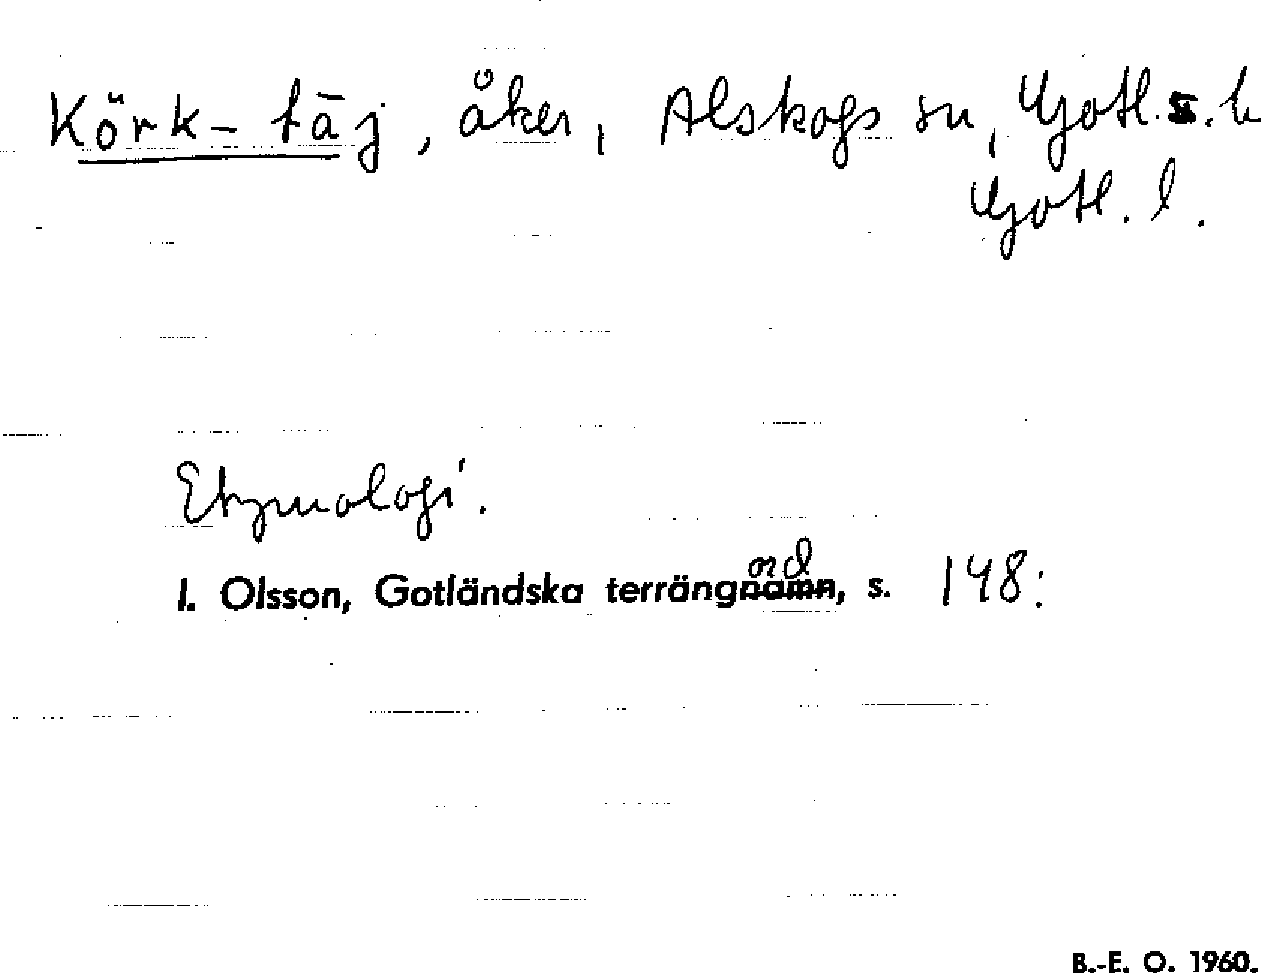 Körk-täj, åker, Alskogs sn, Gotl. s. h
Gotl. l.
Etymologi.
I. Olsson, Gotländska terrängord, s. 148:
B.-E. O. 1960.